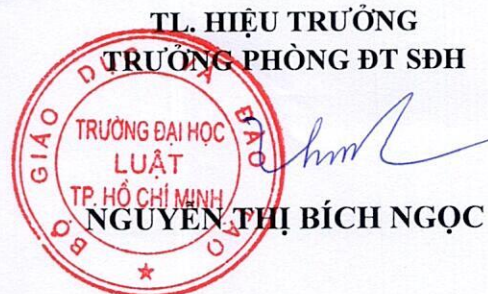 TL. HIỆU TRƯỞNG
TRƯỞNG PHÒNG ĐT SĐH
BỘ GIÁO DỤC VÀ ĐÀO TẠO
TRƯỜNG ĐẠI HỌC
LUẬT
TP. HỒ CHÍ MINH
NGUYỄN THỊ BÍCH NGỌC